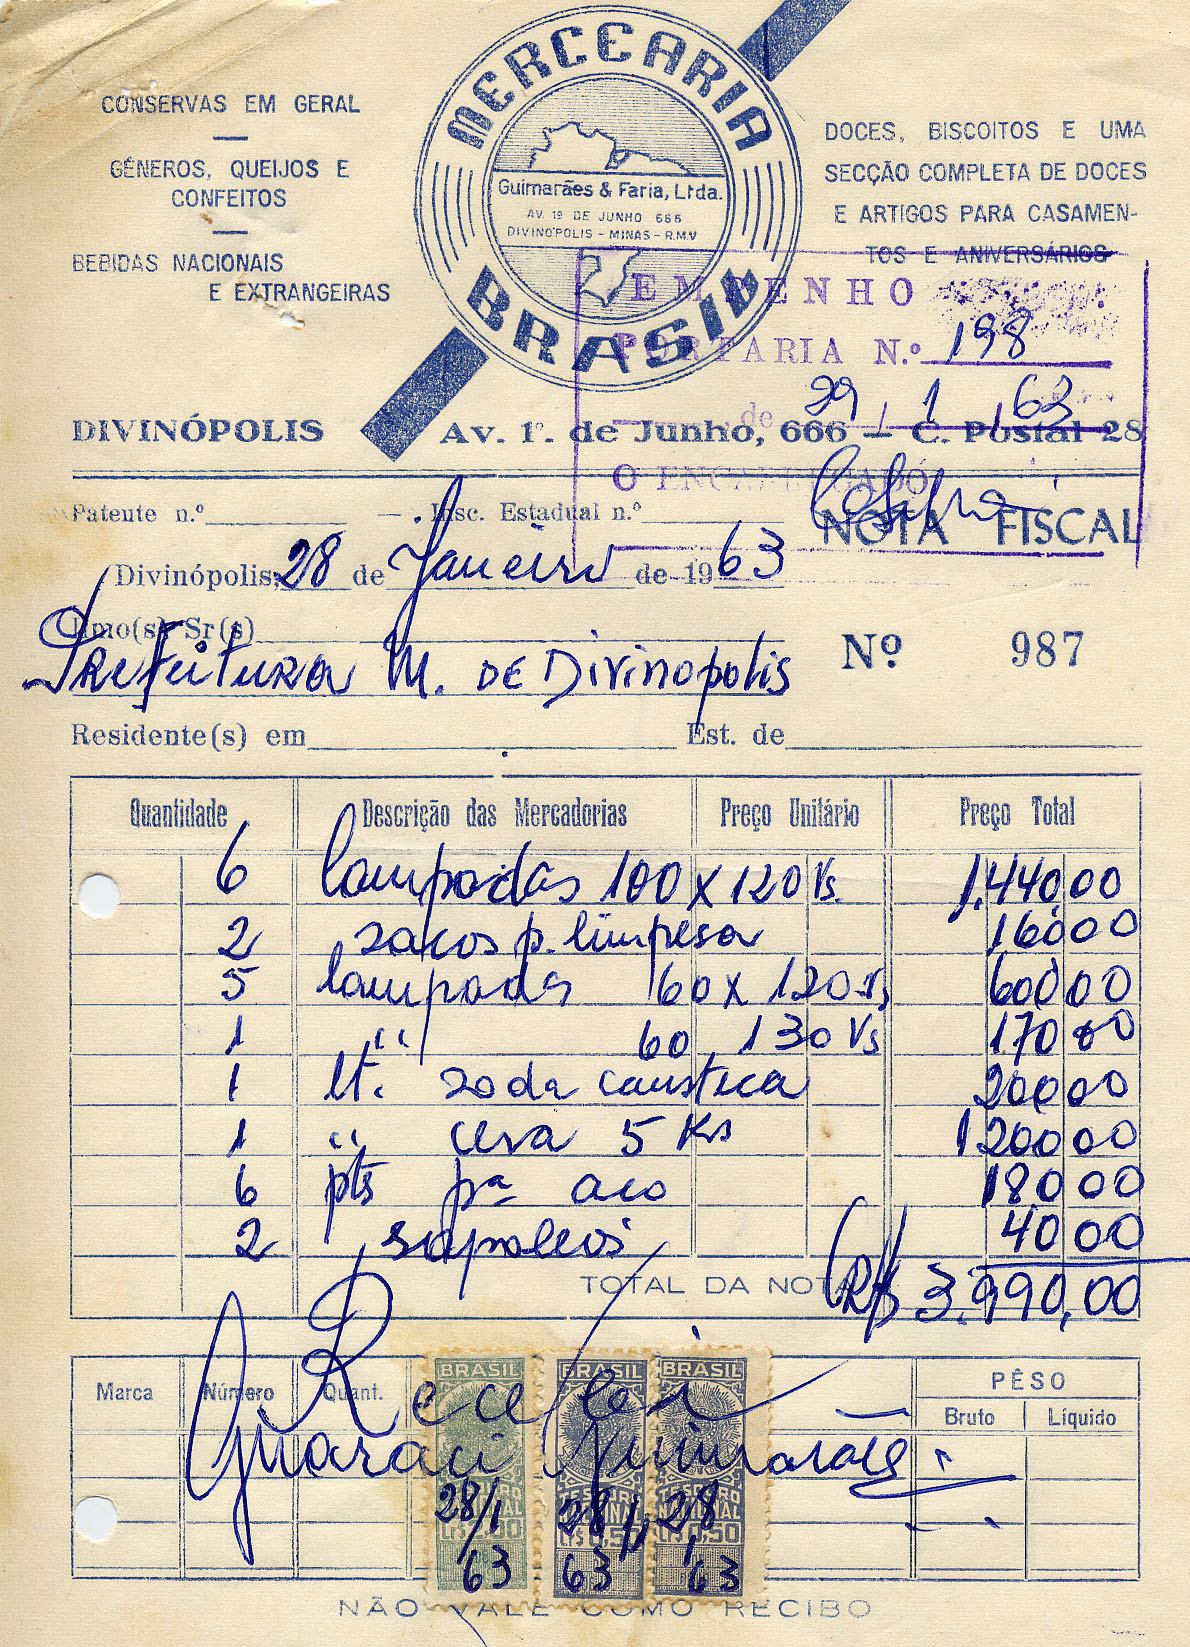 MERCEARIA BRASIL
Guimarães & Faria, Ltda.
AV. 1º DE JUNHO 666
DIVINÓPOLIS - MINAS - R.M.V
CONSERVAS EM GERAL
GÊNEROS, QUEIJOS E
CONFEITOS
BEBIDAS NACIONAIS
E EXTRANGEIRAS
DOCES, BISCOITOS E UMA
SECÇÃO COMPLETA DE DOCES
E ARTIGOS PARA CASAMEN-
TOS E ANIVERSÁRIOS
EMPENHO
PORTARIA N.º 198
de 29 / 1 / 63
O ENCARREGADO
DIVINÓPOLIS Av. 1º. de Junho, 666 — C. Postal 28
Patente n.º — Insc. Estadual n.º
NOTA FISCAL
Divinópolis, 28 de Janeiro de 1963
Ilmo(s) Sr(s)
Prefeitura M. DE Divinopolis
Nº 987
Residente(s) em Est. de
Quantidade Descrição das Mercadorias Preço Unitário Preço Total
6 lampadas 100 X 120 Vs. 1.440,00
2 sacos p. limpesa 160 00
5 lampadas 60 X 120 Vs 600 00
1 " 60 130 Vs 170 00
1 lt. soda caustica 200 00
1 " cera 5 Ks 1200 00
6 pts pª aco 180 00
2 sapoleos 40 00
TOTAL DA NOTA CR$ 3.990,00
Marca Número Quant. PÊSO
Bruto Líquido
Recebi
Guaraci Guimarães
BRASIL BRASIL BRASIL
TESOURO NACIONAL TESOURO NACIONAL TESOURO NACIONAL
CR$ 2,00 CR$ 0,50 CR$ 0,50
28/1 28/1 28/1
63 63 63
NÃO VALE COMO RECIBO